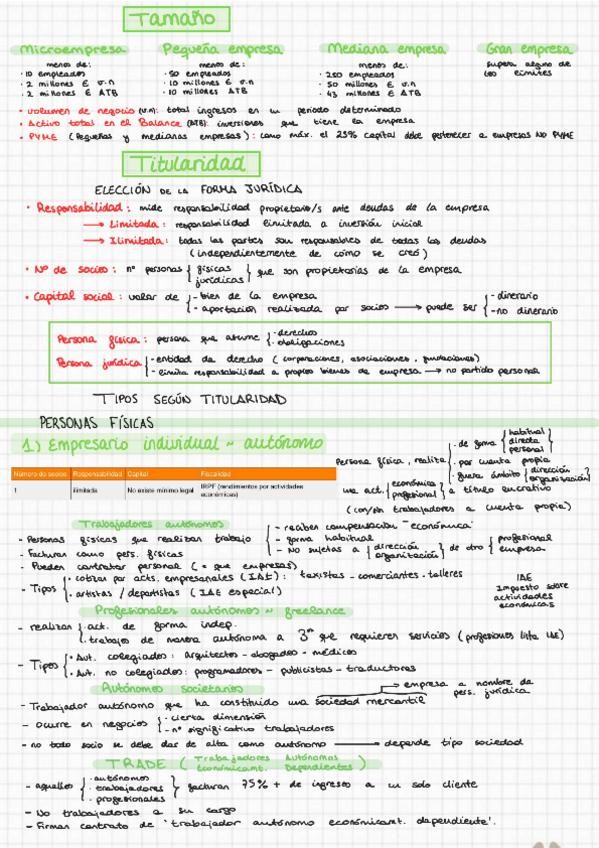 Tamaño
Microempresa
menos de:
· 10 empleados
· 2 millones € v.n
· 2 millones € ATB
Pequeña empresa
menos de:
· 50 empleados
· 10 millones € v.n
· 10 millones ATB
Mediana empresa
menos de:
· 250 empleados
· 50 millones € v.n
· 43 millones € ATB
Gran empresa
supera alguno de
los límites
· Volumen de negocio (v.n): total ingresos en un periodo determinado
· Activo total en el Balance (ATB): inversiones que tiene la empresa
· PYME (Pequeñas y medianas empresas): como máx. el 25% capital debe pertenecer a empresas NO PYME
Titularidad
ELECCIÓN DE LA FORMA JURÍDICA
· Responsabilidad: mide responsabilidad propietario/s ante deudas de la empresa
→ Limitada: responsabilidad limitada a inversión inicial
→ Ilimitada: todas las partes son responsables de todas las deudas
(independientemente de cómo se creó)
· Nº de socios: nº personas { físicas jurídicas } que son propietarias de la empresa
· Capital social: valor de { - bien de la empresa
- aportación realizada por socios → puede ser { - dinerario
- no dinerario
Persona física: persona que asume { - derechos
- obligaciones
Persona jurídica { - entidad de derecho (corporaciones, asociaciones, fundaciones)
- limita responsabilidad a propios bienes de empresa → no partido personal
TIPOS SEGÚN TITULARIDAD
PERSONAS FÍSICAS
1) Empresario individual ~ autónomo
Número de socios Responsabilidad Capital Fiscalidad
1 Ilimitada No existe mínimo legal IRPF (rendimientos por actividades económicas)
Persona física, realiza { · de forma { habitual directa personal
· por cuenta propia
· fuera ámbito { dirección organización }
una act. { económica profesional } a título lucrativo
(con/sin trabajadores a cuenta propia)
Trabajadores autónomos
- Personas físicas que realizan trabajo { - reciben compensación económica
- forma habitual
- NO sujetas a { dirección organización } de otro { profesional empresa
- Facturan como pers. físicas
- Pueden contratar personal (= que empresas)
- Tipos { · cotizar por acts. empresariales (IAE): taxistas - comerciantes - talleres
· artistas / deportistas (IAE especial)
IAE
Impuesto sobre
actividades
económicas
Profesionales autónomos ~ freelance
- realizan { · act. de forma indep.
· trabajos de manera autónoma a 3ºs que requieren servicios (profesiones lista IAE)
- Tipos { · Aut. colegiados: arquitectos - abogados - médicos
· Aut. no colegiados: programadores - publicistas - traductores
Autónomos societarios
- Trabajador autónomo que ha constituido una sociedad mercantil → empresa a nombre de
pers. jurídica
- ocurre en negocios { - cierta dimensión
- nº significativo trabajadores
- no todo socio se debe dar de alta como autónomo → depende tipo sociedad
TRADE (Trabajadores Autónomos
Económicamt. Dependientes)
- aquellos { · autónomos · trabajadores · profesionales } facturan 75% + de ingresos a un solo cliente
- No trabajadores a su cargo
- Firman contrato de 'trabajador autónomo económicamt. dependiente'.